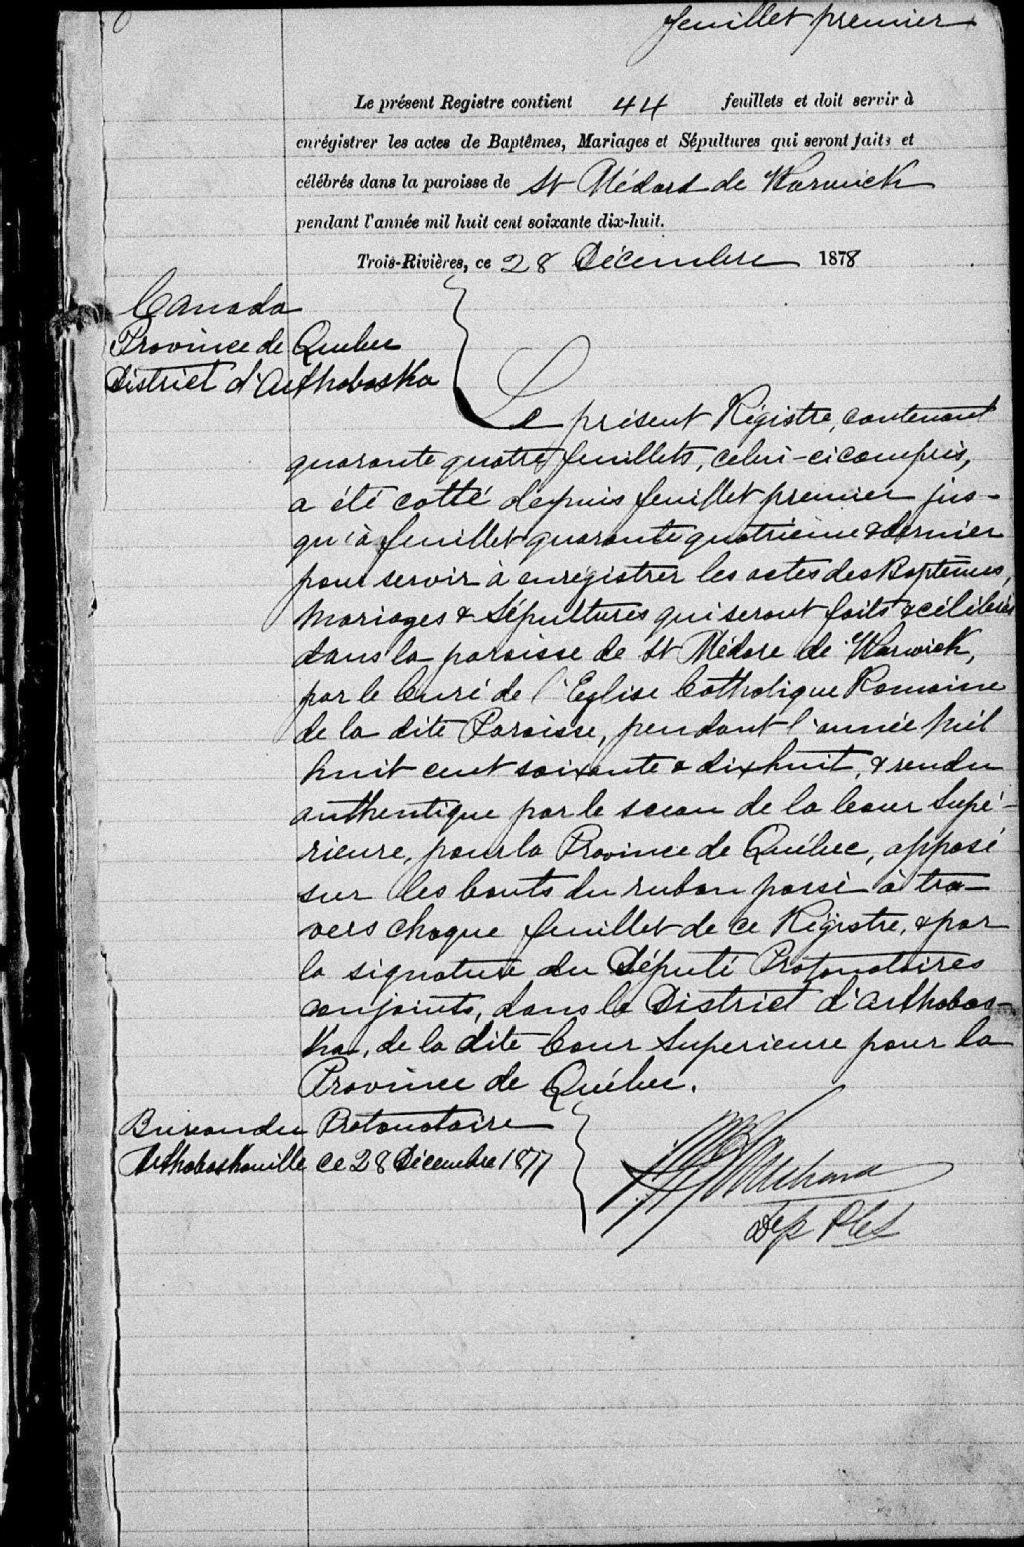 feuillet premier
Le présent Registre contient 44 feuillets et doit servir à
enrégistrer les actes de Baptêmes, Mariages et Sépultures qui seront faits et
célébrés dans la paroisse de St Médard de Warwick
pendant l'année mil huit cent soixante dix-huit.
Trois-Rivières, ce 28 Décembre 1878
Canada
Province de Quebec
District d'Arthabaska
Le présent Régistre, contenant
quarante quatre feuillets, celui-ci compris,
a été cotté depuis feuillet premier jus-
qu'à feuillet quarante quatrième & dernier
pour servir à enregistrer les actes des Baptêmes,
Mariages & Sépultures qui seront faits & célébrés
dans la paroisse de St Médare de Warwick,
par le Curé de l'Eglise Catholique Romaine
de la dite Paroisse, pendant l'année mil
huit cent soixante & dix huit, & rendu
authentique par le sceau de la Cour Supé-
rieure, pour la Province de Québec, apposé
sur les bouts du ruban passé à tra-
vers chaque feuillet de ce Régistre, & par
la signature du Député Protonotaires
conjoints, dans le District d'Arthabas-
ka, de la dite Cour Superieure pour la
Province de Québec.
Bureau du Protonotaire
Arthabaskaville ce 28 Décembre 1877
Dep